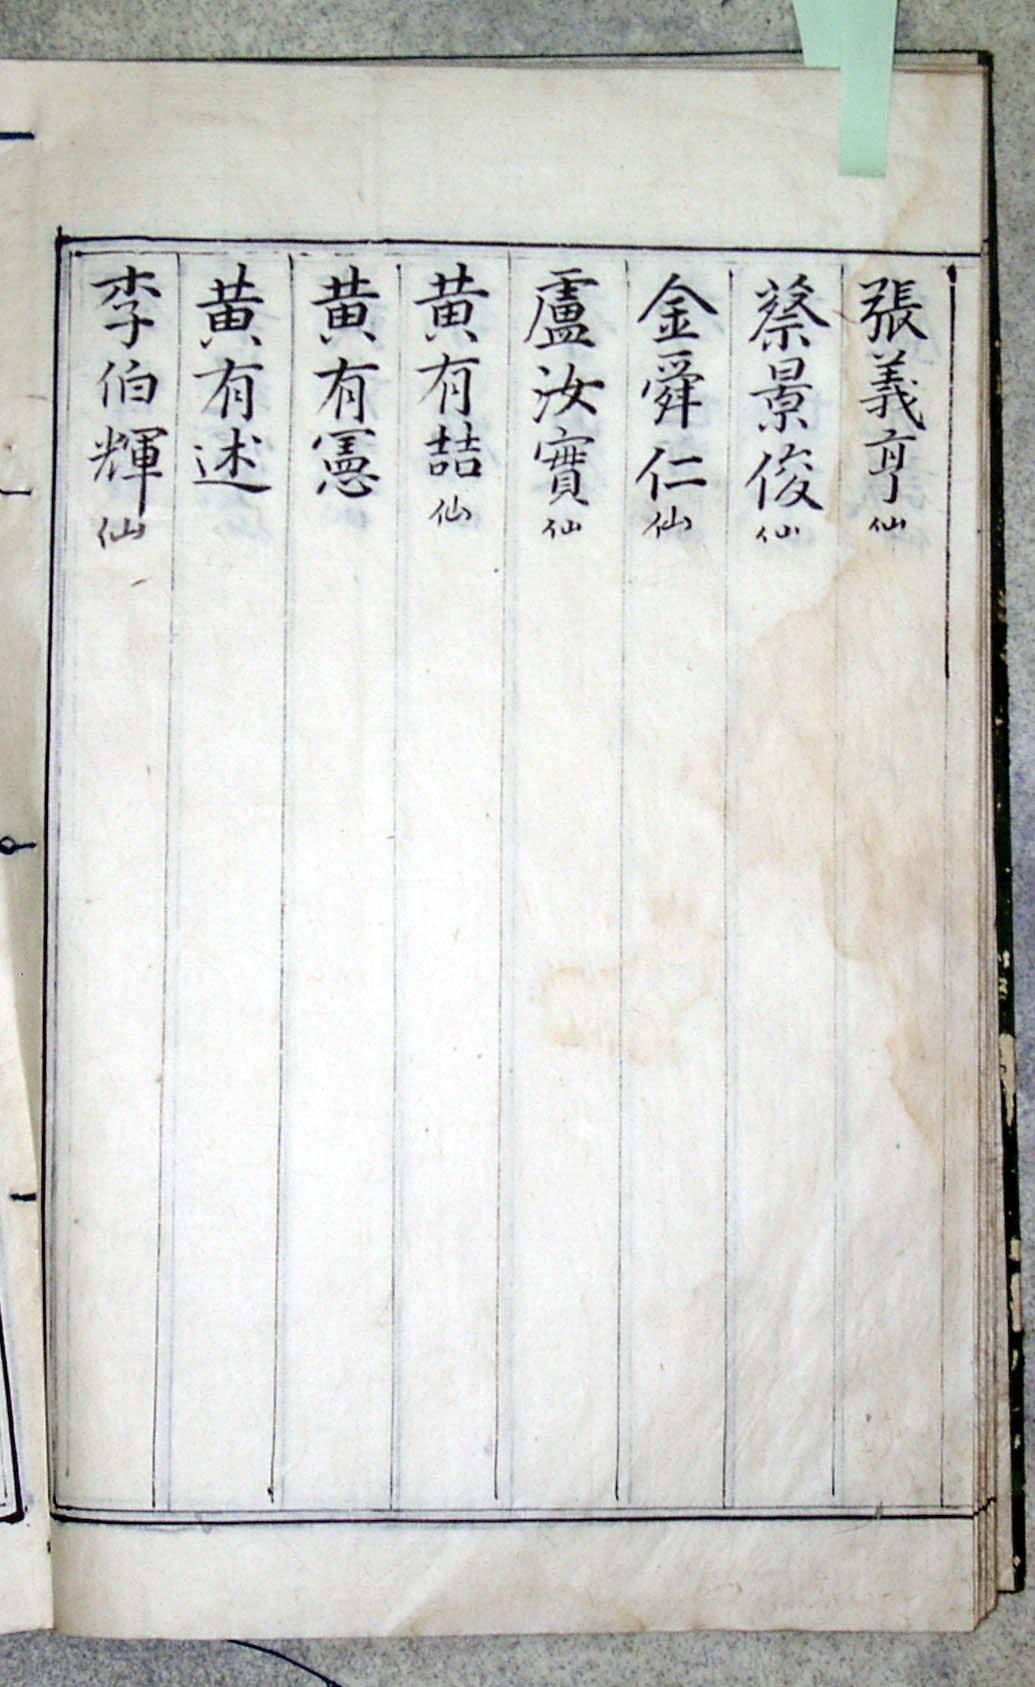 張義亨仙
蔡景俊仙
金舜仁仙
盧汝實仙
黄有喆仙
黄有憲
黄有述
李伯輝仙